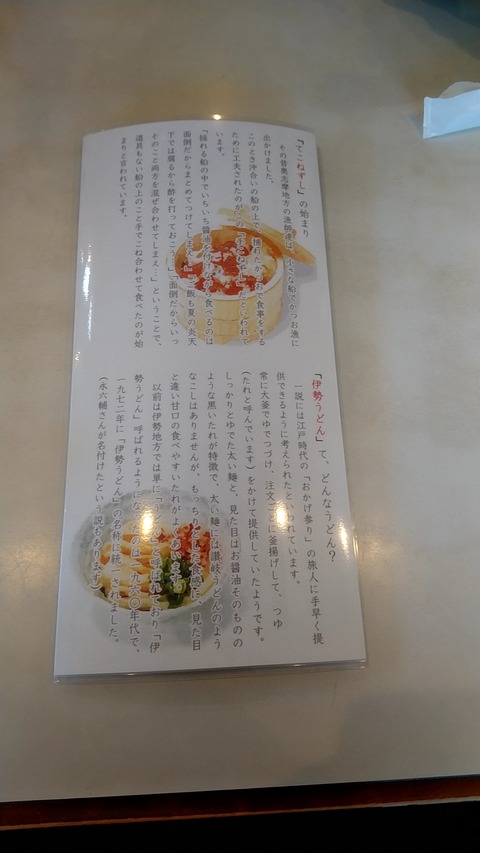 「てこねずし」の始まり
その昔奥志摩地方の漁師達は、小さな船でかつお漁に
出かけました。
このとき沖合いの船の上で、捕れたかつおで食事をする
ために工夫されたのがこの「手こねずし」だといわれて
います。
「揺れる船の中でいちいち醤油を付けながら食べるのは
面倒だからまとめてつけてしまえ」「ご飯も夏の炎天
下では腐るから酢を打っておこう」「面倒だからいっ
そのこと両方を混ぜ合わせてしまえ…」ということで、
道具もない船の上のこと手でこね合わせて食べたのが始
まりと言われています。
「伊勢うどん」て、どんなうどん？
一説には江戸時代の「おかげ参り」の旅人に手早く提
供できるように考えられたといわれています。
常に大釜でゆでつづけ、注文ごとに釜揚げして、つゆ
(たれと呼んでいます)をかけて提供していたようです。
しっかりとゆでた太い麺と、見た目はお醤油そのものの
ような黒いたれが特徴で、太い麺には讃岐うどんのよう
なこしはありませんが、もっちりとした食感に、見た目
と違い甘口の食べやすいたれがよくあいます。
以前は伊勢地方では単に「う 呼ばれており「伊
勢うどん」呼ばれるようになったのは一九六〇年代で、
一九七二年に「伊勢うどん」の名称に統一されました。
(永六輔さんが名付けたという説もあります)